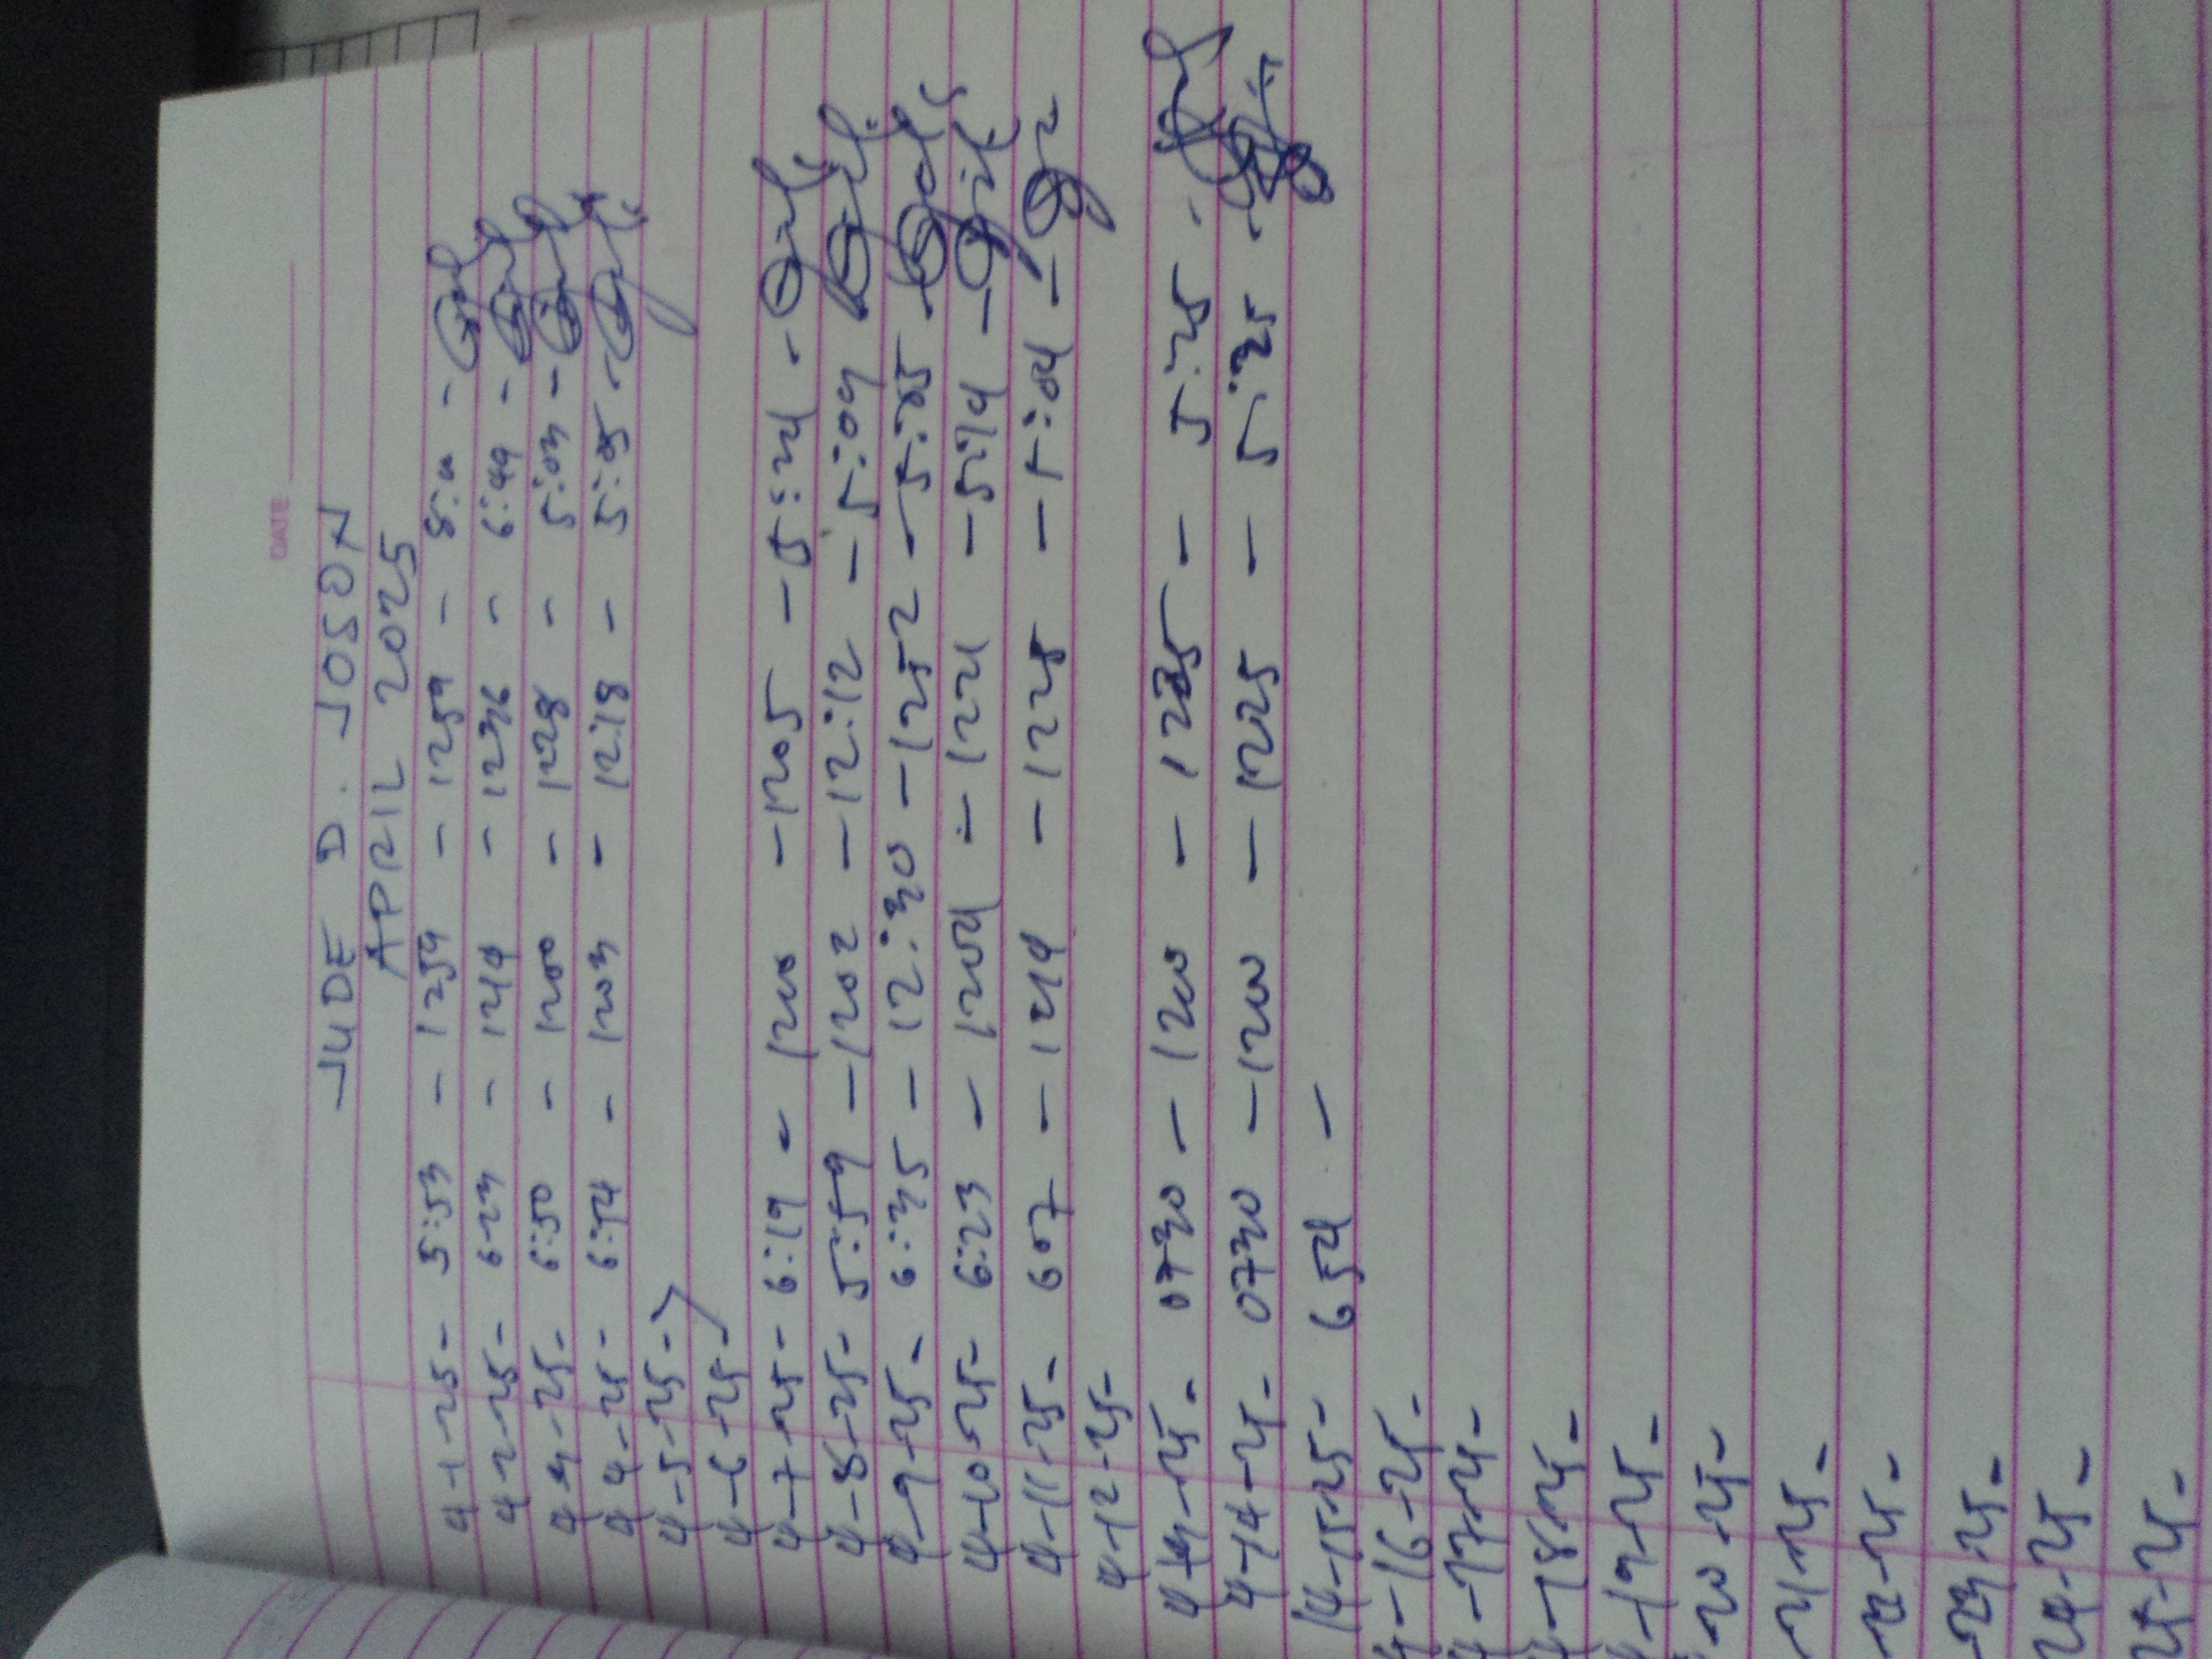 DATE
JUDE D. JOSON
APRIL 2025
4-1-25- 5:53 - 1254 - 1254 - 8:00 -
4-2-25- 6:23 - 1219 - 1236 - 6:49 -
4-3-25- 6:50 - 1200 - 1228 - 5:03 -
4-4-25- 6:54 - 1203 - 12:18 - 5:05 -
4-5-25-
4-6-25-
4-7-25- 6:19 - 1200 - 1205 - 5:24 -
4-8-25- 5:59 - 1202 - 12:12 - 5:04
4-9-25- 6:35 - 12:30 - 1252 - 5:35
4-10-25- 6:23 - 1204 - 1221 - 5:14 -
4-11-25- 607 - 1219 - 1225 - 5:04 -
4-12-25-
4-13-25- 0730 - 1200 - 1225 - 5:25 -
4-14-25- 0730 - 1200 - 1225 - 5:35 -
4-15-25- 654 -
4-16-25-
4-17-25-
4-18-25-
4-19-25-
-20-25-
-21-25-
-22-25-
-23-25-
24-25-
25-25-